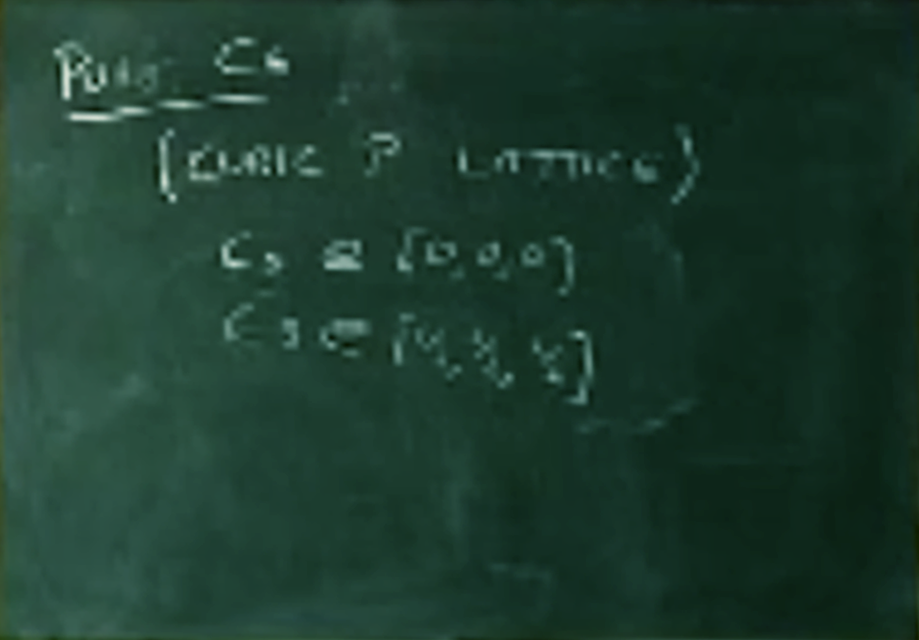 PURE Cs
(CUBIC P LATTICE)
Cs @ [0,0,0]
Cs @ [½,½,½]